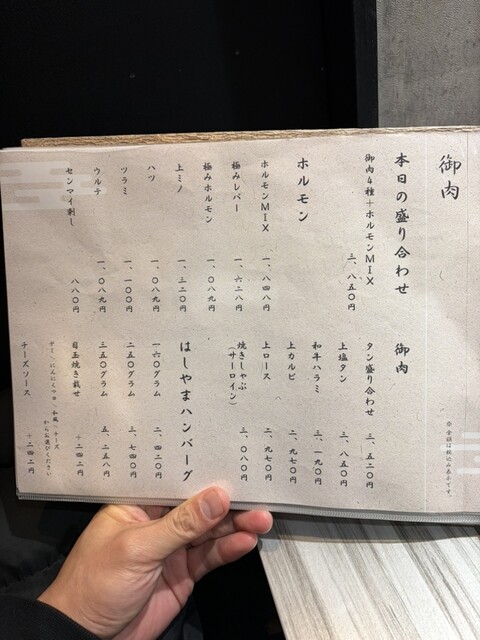 御肉
※金額は税込み表示です。
本日の盛り合わせ
御肉4種+ホルモンMIX 三、八五〇円
ホルモン
ホルモンMIX 一、八四八円
極みレバー 一、六二八円
極みホルモン 一、〇八九円
上ミノ 一、三二〇円
ハツ 一、〇八九円
ツラミ 一、一〇〇円
ウルテ 一、〇八九円
センマイ刺し 八八〇円
御肉
タン盛り合わせ 三、五二〇円
上塩タン 三、八五〇円
和牛ハラミ 三、一九〇円
上カルビ 二、九七〇円
上ロース 二、九七〇円
焼きしゃぶ
(サーロイン) 三、〇八〇円
はしやまハンバーグ
一六〇グラム 二、四二〇円
二五〇グラム 三、七四〇円
三五〇グラム 五、二五八円
目玉焼き載せ +二四二円
デミ、にんにくマヨ、和風、チーズ
からお選びください
チーズソース +二四二円